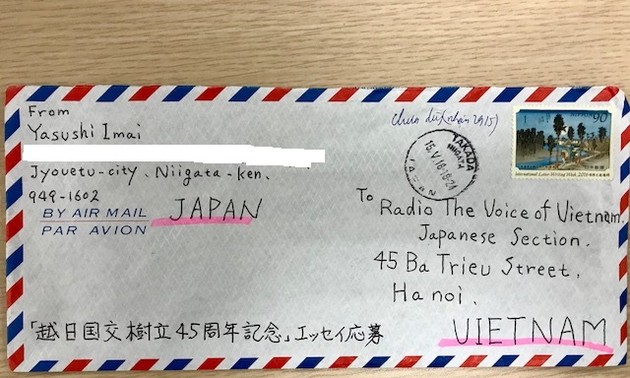 From
Yasushi Imai
Jyouetu-city, Niigata-Ken.
949-1602
BY AIR MAIL
PAR AVION
JAPAN
Chưa
TAKADA
NIIGATA
15.V.18.18-24
JAPAN
90
International Letter Writing Week,
To
Radio The Voice of Vietnam.
Japanese Section.
45 Ba Trieu Street,
Hanoi.
VIETNAM
「越日国交樹立45周年記念」エッセイ応募